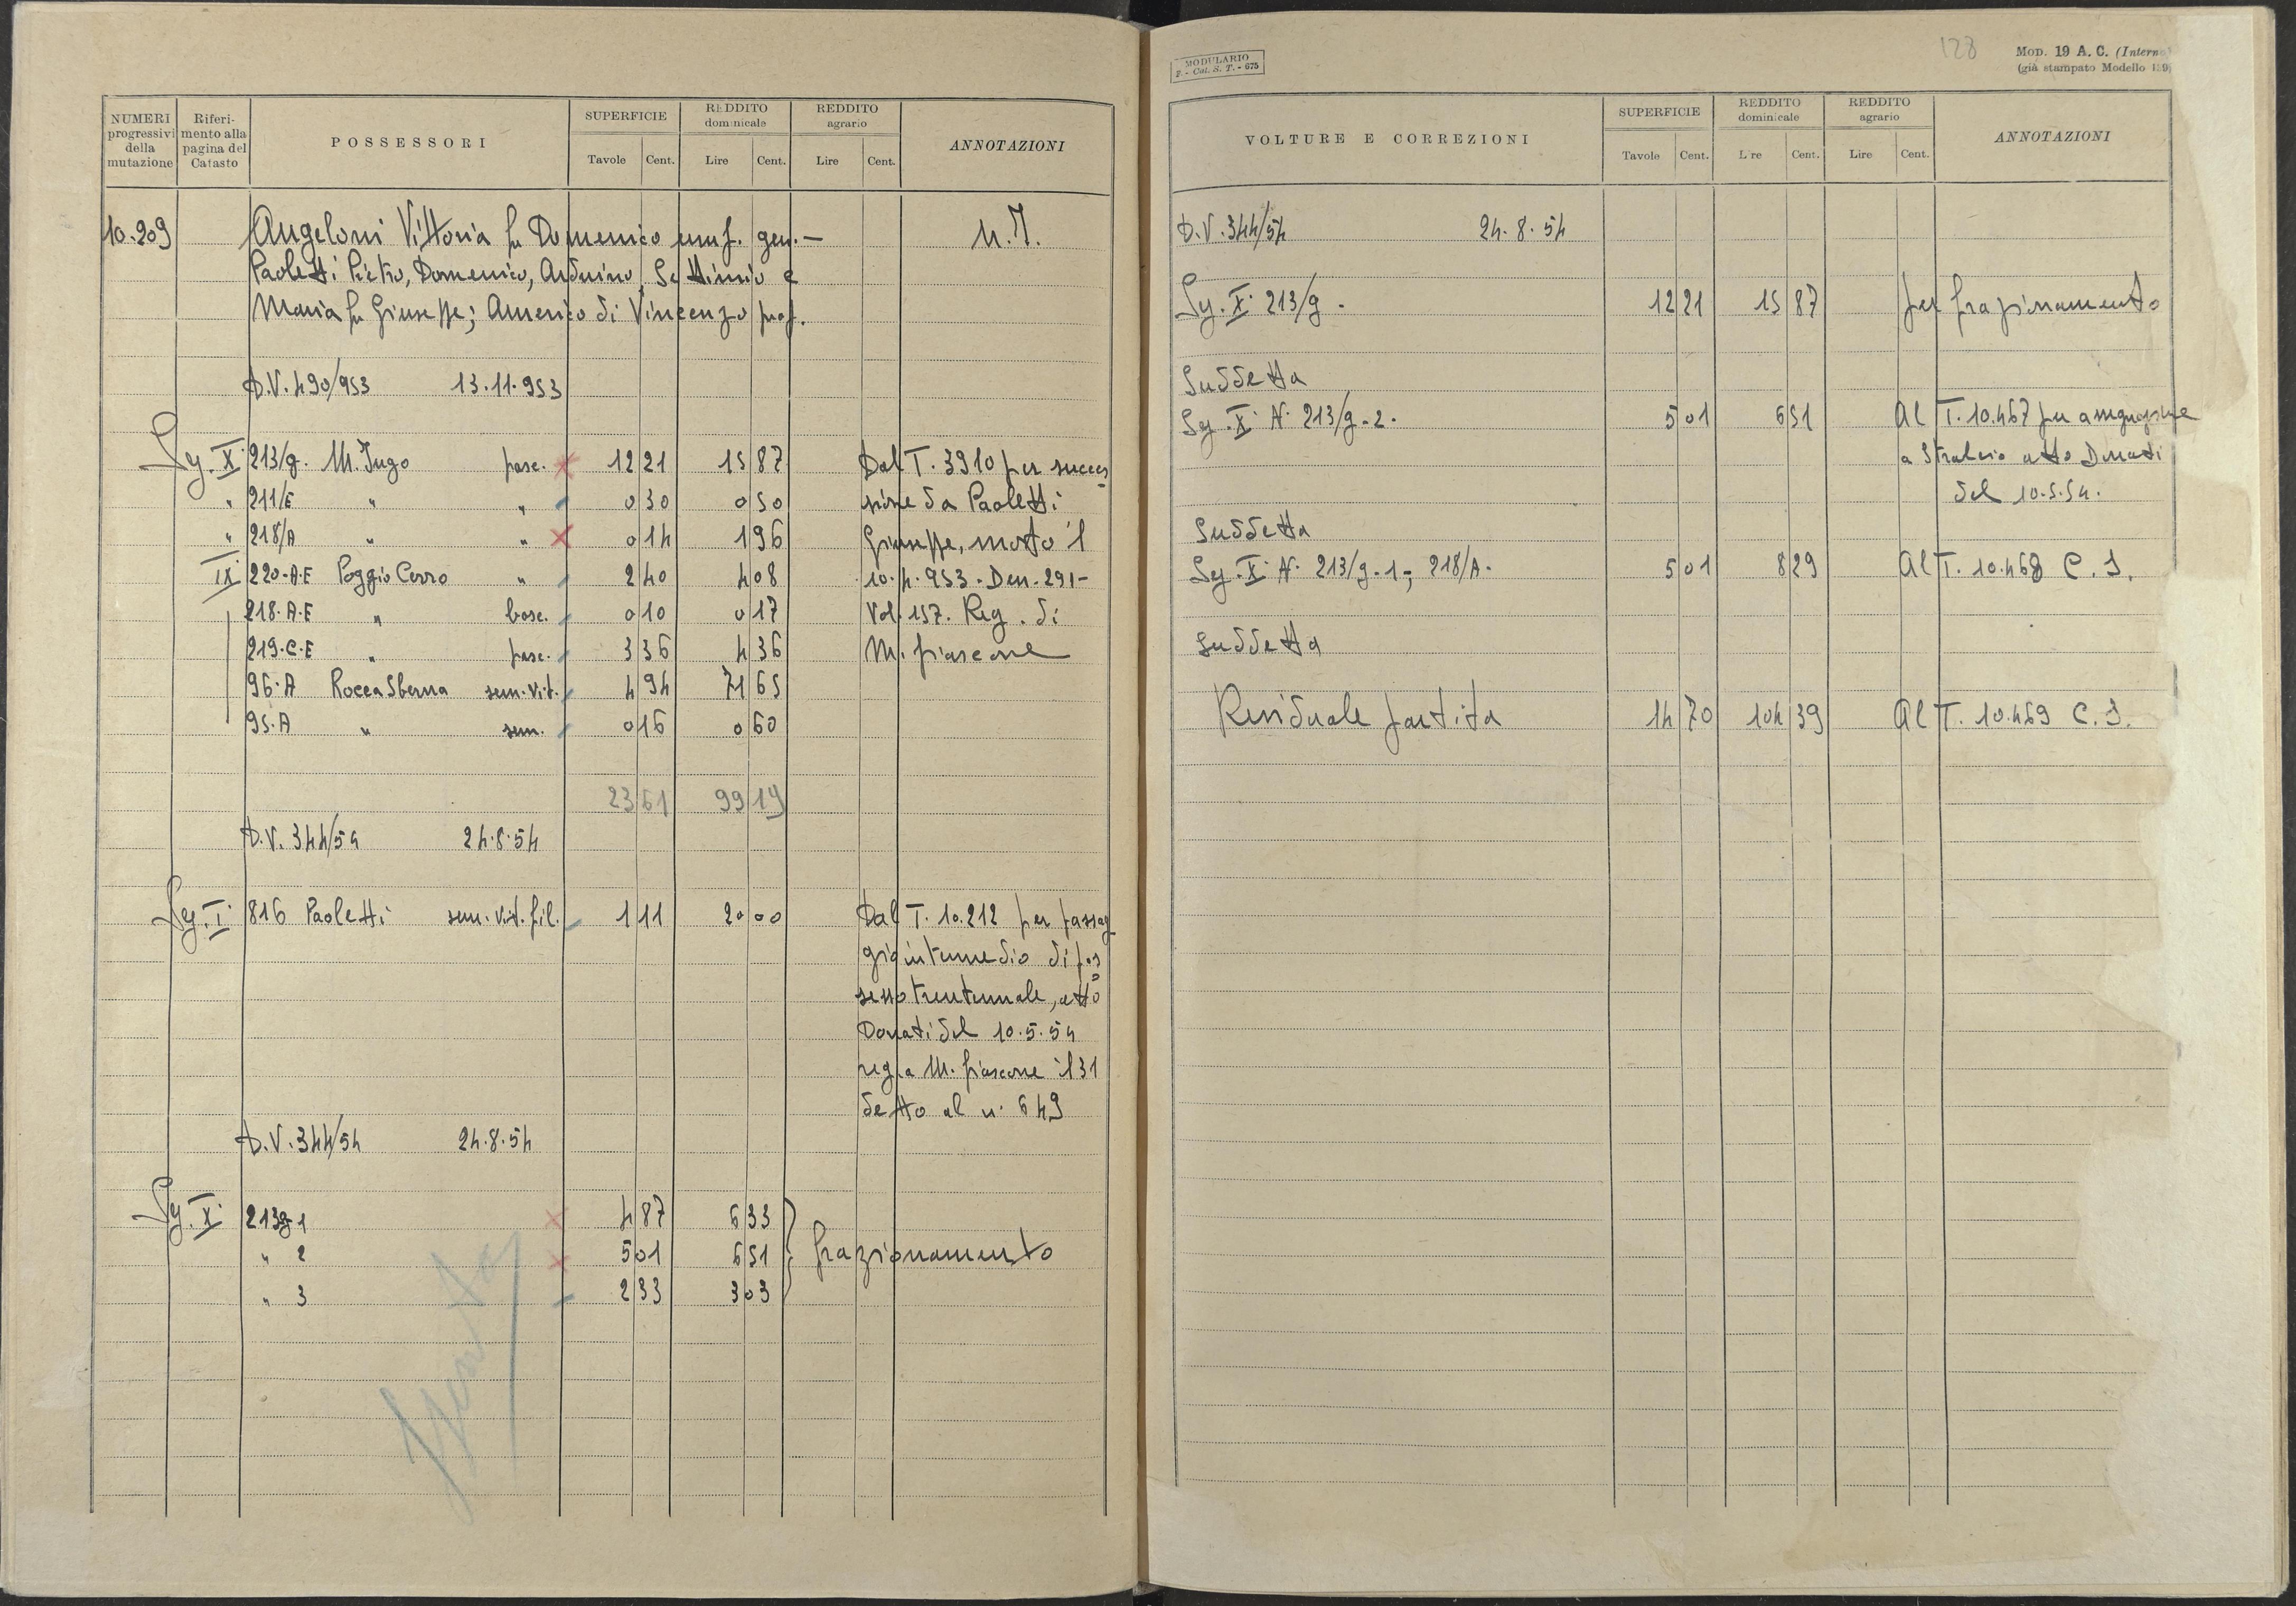 NUMERI progressivi della mutazione
Riferimento alla pagina del Catasto
POSSESSORI
SUPERFICIE
Tavole Cent.
REDDITO dominicale
Lire Cent.
REDDITO agrario
Lire Cent.
ANNOTAZIONI
10.209 Angeloni Vittoria fu Domenico usuf. gen.- n. 7.
Paoletti Pietro, Domenico, Arduino, Settimio e
Maria fu Giuseppe; Americo di Vincenzo prop.
D.V. 490/953 13.11.953
Sez. X 213/g. M. Jugo pasc. x 12 21 15 87 Dal T. 3910 per succes
" 211/E " " 0 30 0 50 sione da Paoletti
" 218/A " " x 0 14 1 96 Giuseppe, morto il
IX 220-A-E Poggio Cerro " 2 40 4 08 10.4.953. Den. 291-
218-A-E " bosc. 0 10 0 17 Vol. 157. Reg. di
219-C-E " pasc. 3 36 4 36 M. fiascone
96-A Rocca Sberna sem. vit. 4 94 71 65
95-A " sem. 0 16 0 60
23 61 99 19
D.V. 344/54 24.8.54
Sez. I 816 Paoletti sem. vit. fil. 1 11 20 00 Dal T. 10.212 per passag
gio intermedio di pos
sesso trentennale, atto
Donati del 10.5.54
reg. a M. fiascone il 31
detto al n. 649
D.V. 344/54 24.8.54
Sez. X 213g1 x 4 87 6 33
" 2 x 5 01 6 51 frazionamento
" 3 2 33 3 03
MODULARIO
F. - Cat. S. T. - 675
128
MOD. 19 A. C. (Interno
(già stampato Modello 119
VOLTURE E CORREZIONI
SUPERFICIE
Tavole Cent.
REDDITO dominicale
Lire Cent.
REDDITO agrario
Lire Cent.
ANNOTAZIONI
D.V. 344/54 24.8.54
Sez. X 213/g. 12 21 15 87 per frazionamento
Suddetta
Sez. X N. 213/g-2. 5 01 6 51 Al T. 10.467 per assegnazione
a stralcio atto Donati
del 10.5.54.
Suddetta
Sez. X N. 213/g-1; 218/A. 5 01 8 29 Al T. 10.468 C. S.
Suddetta
Residuale partita 14 70 104 39 Al T. 10.469 C. S.